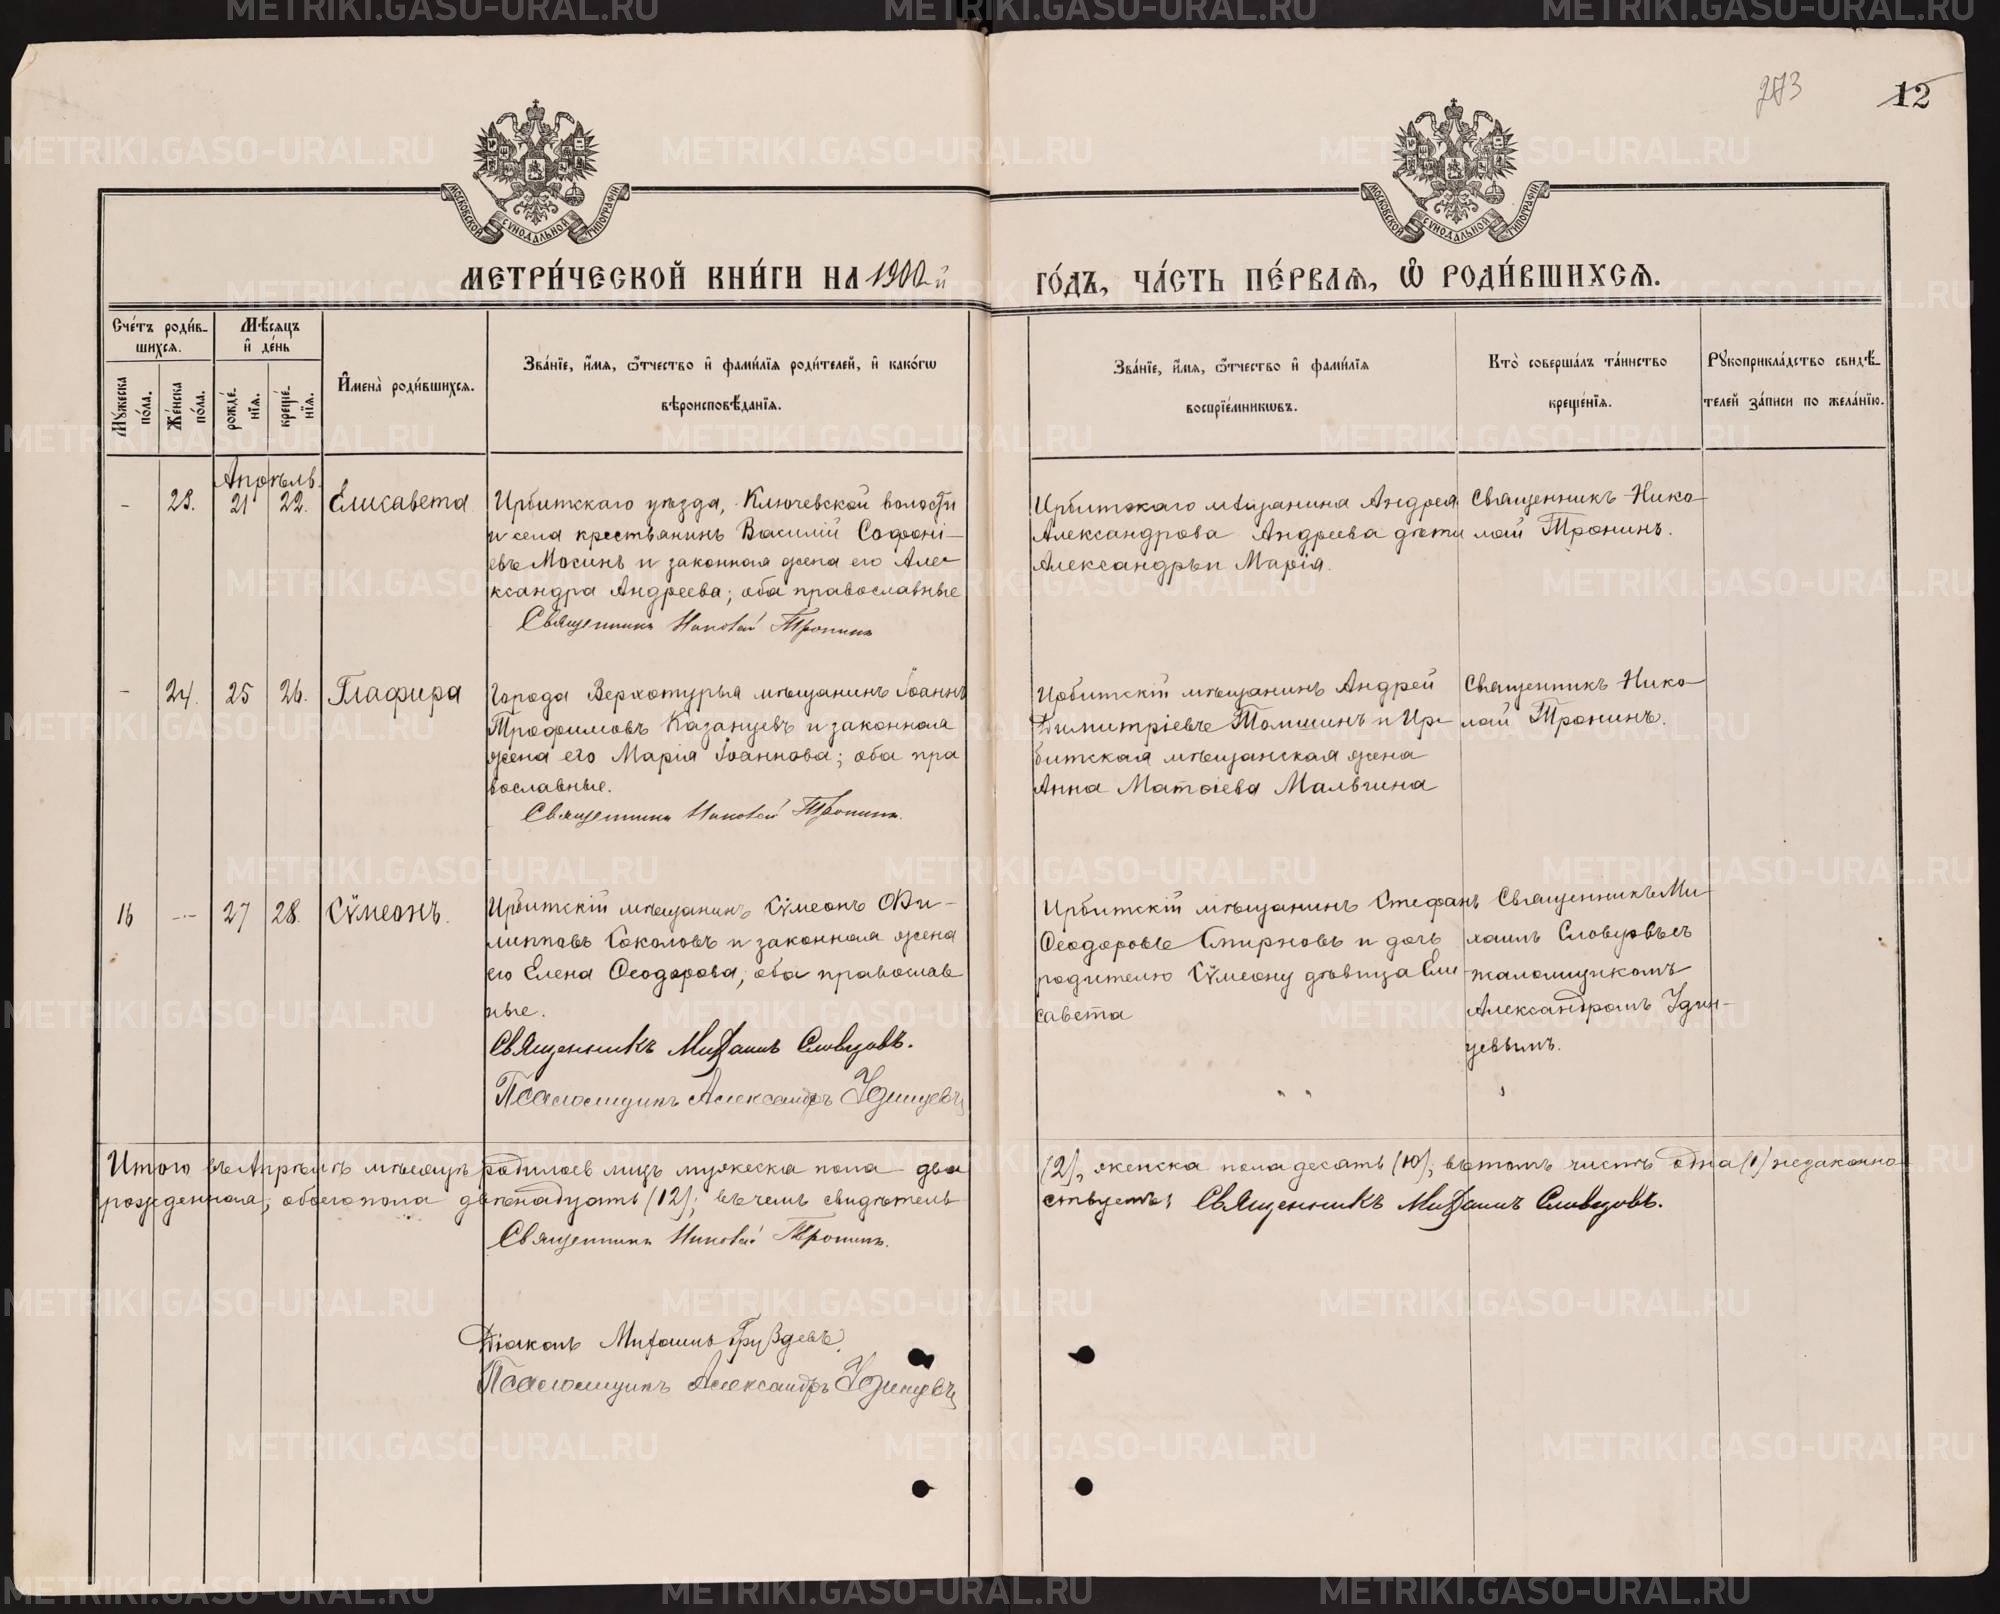 273
12
МОСКОВСКОЙ СѴНОДАЛЬНОЙ ТИПОГРАФІИ
МОСКОВСКОЙ СѴНОДАЛЬНОЙ ТИПОГРАФІИ
МЕТРИ́ЧЕСКОЙ КНИ́ГИ НА 1900-й ГО́ДЪ, ЧА́СТЬ ПЕ́РВАѦ, Ѡ҆ РОДИ́ВШИХСѦ.
Сче́тъ роди́в-
шихсѧ.
Мꙋ́жеска
по́ла.
Же́нска
по́ла.
Мѣ́сѧцъ
и҆ де́нь
рожде́-
нїѧ.
креще́-
нїѧ.
И҆мена̀ роди́вшихсѧ.
Зва́нїе, и҆́мѧ, ѻ҆́тчество и҆ фами́лїѧ роди́телей, и҆ како́гѡ
вѣроисповѣ́данїѧ.
Зва́нїе, и҆́мѧ, ѻ҆́тчество и҆ фами́лїѧ
воспрїе́мникѡвъ.
Кто̀ соверша́лъ та́инство
креще́нїѧ.
Рꙋкоприкла́дство свидѣ́-
телей за́писи по жела́нїю.
Апрѣль.
- 23. 21 22. Елисавета
Ирбитскаго уѣзда, Ключевской волости
и села крестьянинъ Василій Софоні-
евъ Мосинъ и законная жена его Але-
ксандра Андреева; оба православные
Священникъ Николай Тронинъ
Ирбитскаго мѣщанина Андрея
Александрова Андреева дѣти
Александръ и Марія.
Священникъ Нико-
лай Тронинъ.
- 24. 25 26. Глафира
Города Верхотурья мѣщанинъ Іоаннъ
Трофимовъ Казанцевъ и законная
жена его Марія Іоаннова; оба пра
вославные.
Священникъ Николай Тронинъ.
Ирбитскій мѣщанинъ Андрей
Димитріевъ Томшинъ и Ир-
битская мѣщанская жена
Анна Матѳіева Мальгина
Священникъ Нико-
лай Тронинъ.
16 - 27 28. Сѵмеонъ.
Ирбитскій мѣщанинъ Сѵмеонъ Фи-
липповъ Соколовъ и законная жена
его Елена Ѳеодорова; оба православ
ные.
Священникъ Михаилъ Словцовъ.
Псаломщикъ Александръ Удинцевъ
Ирбитскій мѣщанинъ Стефанъ
Ѳеодоровъ Смирновъ и дочь
родителю Сѵмеону дѣвица Ели
савета
Священникъ Ми-
хаилъ Словцовъ съ
псаломщикомъ
Александромъ Удин-
цевымъ.
Итого въ Апрѣлѣ мѣсяцѣ родилось лицъ мужеска пола два (2), женска пола десять (10); въ томъ числѣ одна (1) незаконно-
рожденная; обоего пола двѣнадцать (12); въ чемъ свидѣтель ствуетъ: Священникъ Михаилъ Словцовъ.
Священникъ Николай Тронинъ.
Діаконъ Михаилъ Груздевъ.
Псаломщикъ Александръ Удинцевъ
METRIKI.GASO-URAL.RU